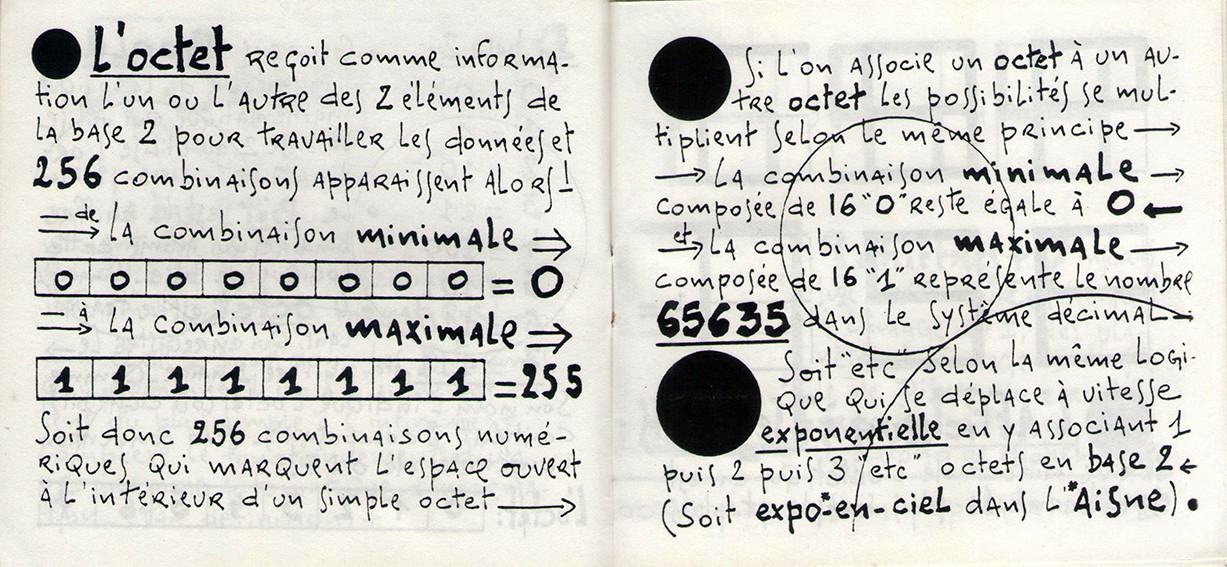 L'octet reçoit comme informa-
tion l'un ou l'autre des 2 éléments de
la base 2 pour travailler les données et
256 combinaisons apparaissent alors !
de la combinaison minimale
0 0 0 0 0 0 0 0 = 0
à la combinaison maximale
1 1 1 1 1 1 1 1 = 255
Soit donc 256 combinaisons numé-
riques qui marquent l'espace ouvert
à l'intérieur d'un simple octet →
Si l'on associe un octet à un au-
tre octet les possibilités se mul-
tiplient selon le même principe →
→ la combinaison minimale →
composée de 16 "0" reste égale à 0 ←
et → la combinaison maximale →
composée de 16 "1" représente le nombre
65635 dans le système décimal →
Soit "etc" selon la même logi-
que qui se déplace à vitesse
exponentielle en y associant 1
puis 2 puis 3 "etc" octets en base 2 ←
(Soit expo*-en-ciel dans l'*Aisne).